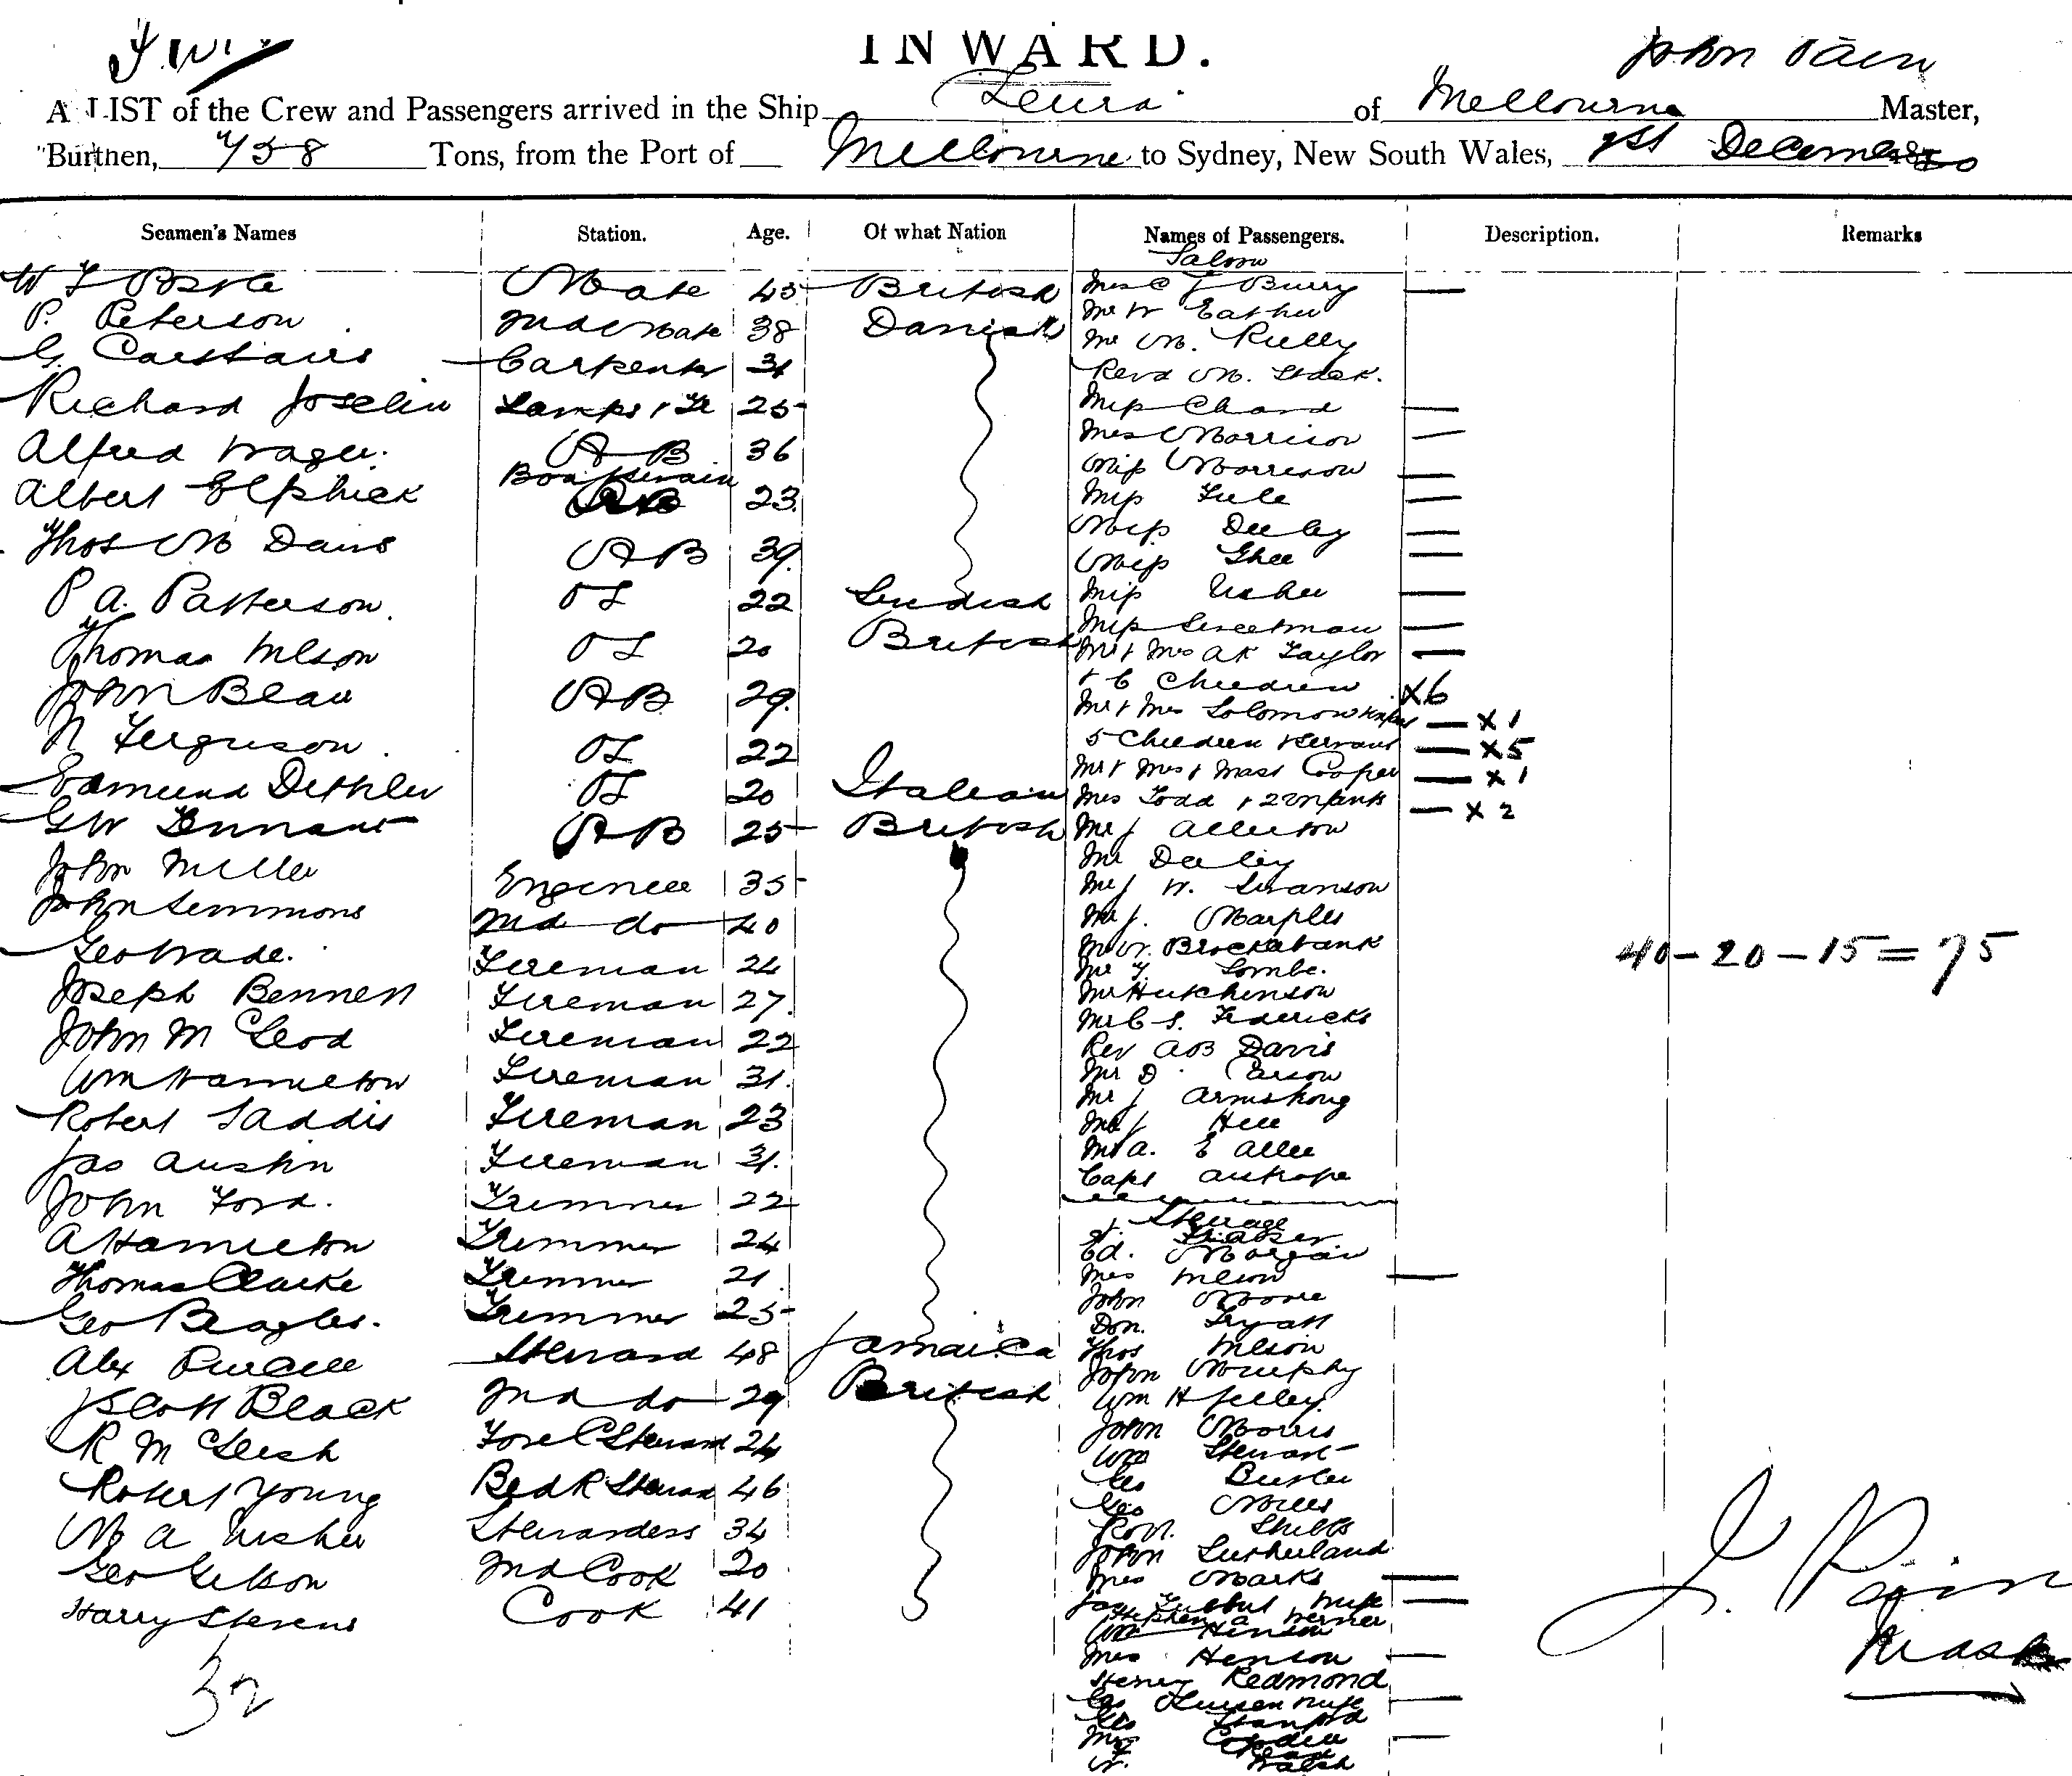 INWARD.
John Pain
A LIST of the Crew and Passengers arrived in the Ship Leura of Melbourne Master,
Burthen, 758 Tons, from the Port of Melbourne to Sydney, New South Wales, 1st December
Seamen's Names Station. Age. Of what Nation Names of Passengers. Description. Remarks
Saloon
Mate 45 British Mrs Burry —
P. Peterson 2nd Mate 38 Danish Mr W Eather
G. Carstairs Carpenter 31 Mr M. Kelly
Revd M.
Richard Joselin Lamps 25 Miss Chard —
Alfred Wager. AB 36 Mrs Morrison —
Boatswain Miss Morrison —
Albert Elphick AB 23 Miss —
Thos M Davis AB 39 Miss Deeley —
Miss Ghee —
P A. Patterson. OS 22 Swedish Miss Usher —
Miss Sweetman —
Thomas Nelson OS 20 British Mr & Mrs AK Taylor —
John Beau AB 29 & 6 Children x6
Mr & Mrs Solomon — x1
N Ferguson. OS 22 5 Children & Servant — x5
Mr & Mrs & Mast Cooper — x1
Edmund OS 20 Italian Mrs Todd & 2 Infants — x2
GW Tennant AB 25 British Mr J Allerton
John Miller Engineer 35 Mr Deeley
Mr J W. Swanson
John Semmons 2nd do 40 Mr J. Marples
Geo Wade. Fireman 24 Mr W. Brockebank
Mr Lombe.
40 – 20 – 15 = 75
Joseph Bennett Fireman 27 Mr Hutchinson
Mr C S. Fredericks
John McLeod Fireman 22 Rev AB Davis
Wm Hamilton Fireman 31 Mr D Carson
Mr J Armstrong
Robert Gaddis Fireman 23 Mr J Hill
Jas Austin Fireman 31 Mr A. E
Capt
John Ford. Trimmer 22
Steerage
A Hamilton Trimmer 24 Fraser
Ed. Morgan
Thomas Clarke Trimmer 21 Mrs Nelson —
John Moore
Geo Beagles. Trimmer 25 Don.
Alex Purcell Steward 48 Jamaica Thos Nelson
John Murphy
J Scott Black 2nd do 29 British Wm H
John Morris
R McLeish Fore C Steward 24 Wm Stewart
Geo Butler
Robert Young Bed R Steward 46 Geo Mills
M A Usher Stewardess 34 Robt.
John Sutherland
Geo Gibson 2nd Cook 20 Mrs Marks —
Harry Stevens Cook 41 Jas wife —
Stephen A Werner
Wm Henson
32
Mrs Henson —
Henry Redmond
wife —
Geo Stanford
Mrs —
W. Walsh
J. Pain
Master